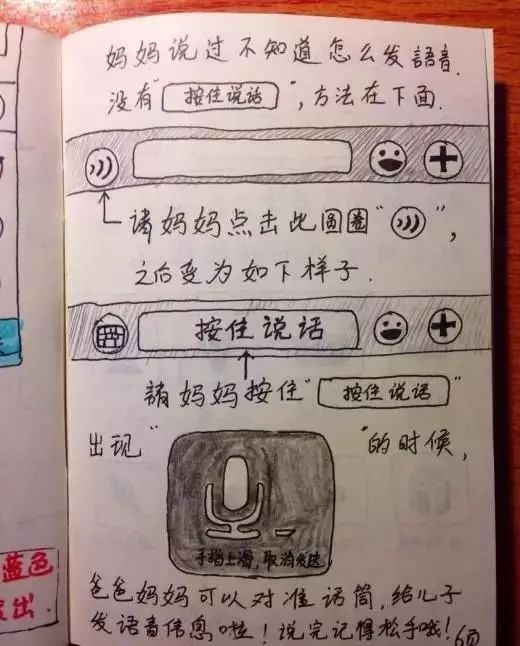 妈妈说过不知道怎么发語音.
没有"按住说话",方法在下面.
请妈妈点击此圆圈"",
之后变为如下样子.
按住说话
請妈妈按住"按住说话"
出现""的时候,
手指上滑,取消发送
爸爸妈妈可以对准话筒,给儿子
发语音信息啦!说完记得松手哦!
6页
蓝色
出.